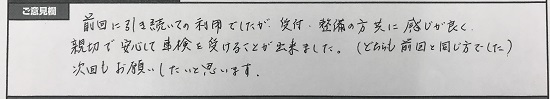 ご意見欄
前回に引き続いての利用でしたが、受付・整備の方共に感じが良く、
親切で安心して車検を受けることが出来ました。(どちらも前回と同じ方でした)
次回もお願いしたいと思います。